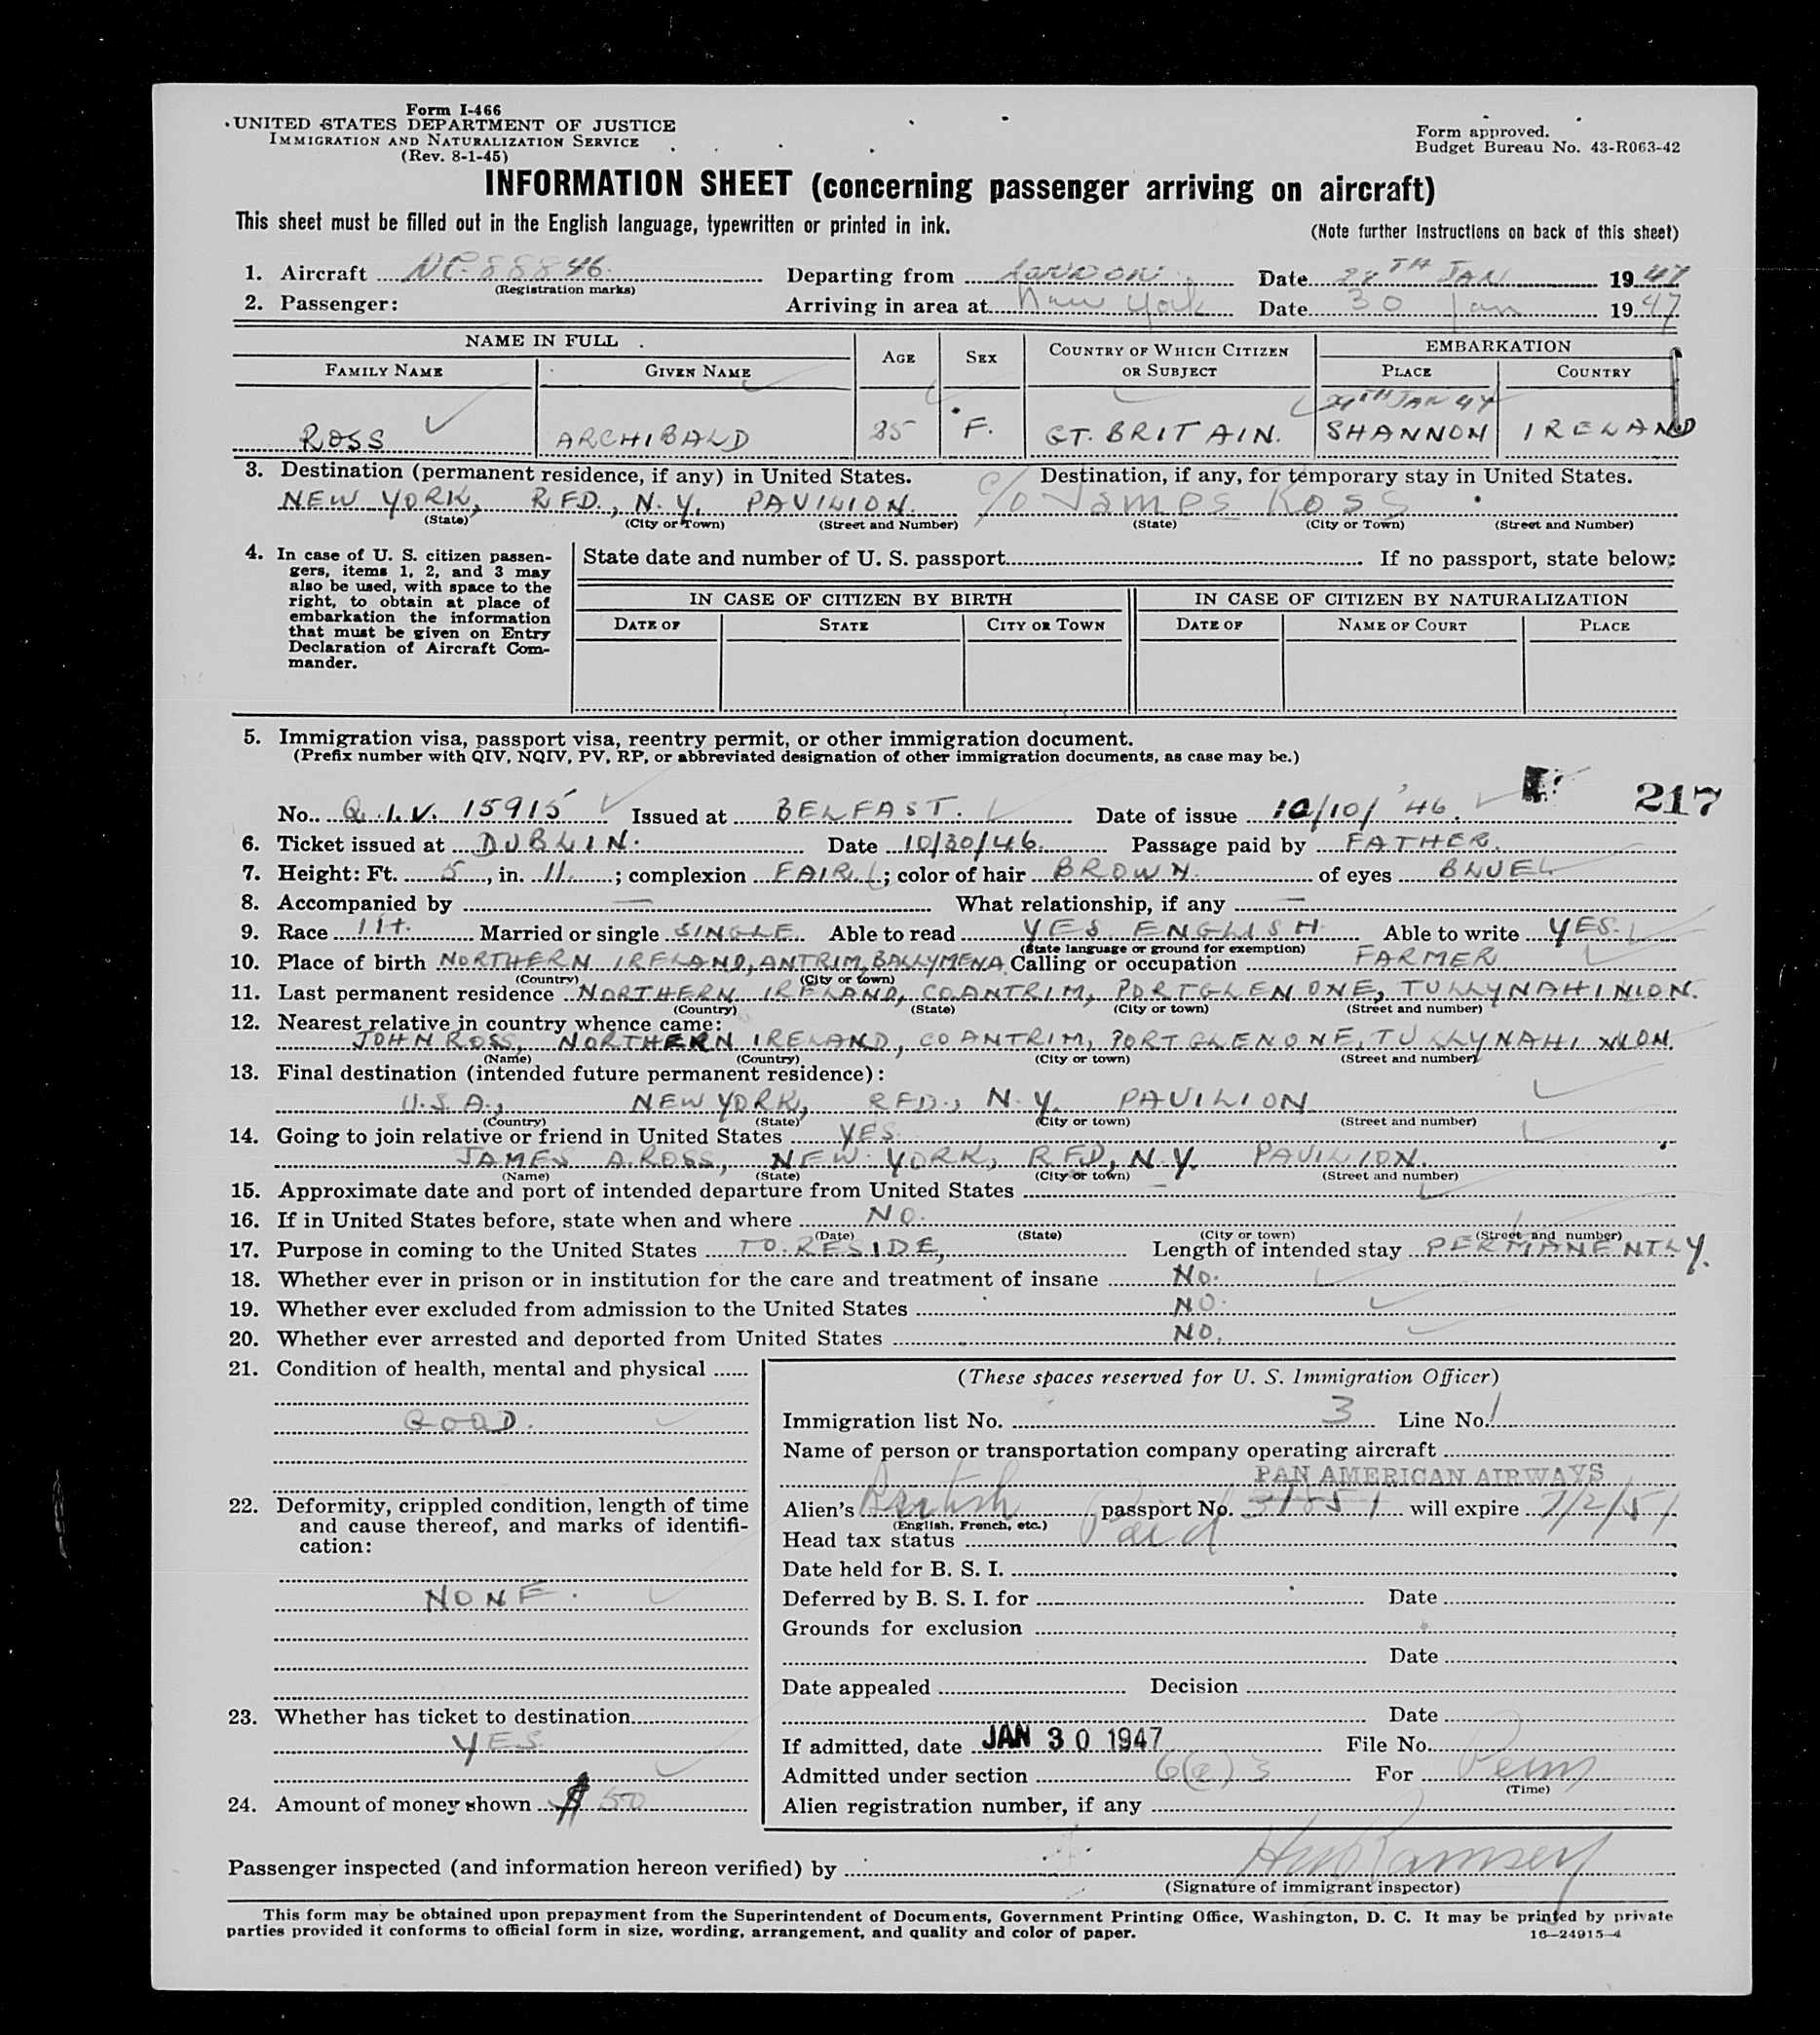 Form I-466
UNITED STATES DEPARTMENT OF JUSTICE
IMMIGRATION AND NATURALIZATION SERVICE
(Rev. 8-1-45)
Form approved.
Budget Bureau No. 43-R063-42
INFORMATION SHEET (concerning passenger arriving on aircraft)
This sheet must be filled out in the English language, typewritten or printed in ink.
(Note further instructions on back of this sheet)
1. Aircraft NC-88846 Departing from LONDON Date TH JAN 1947
(Registration marks)
2. Passenger: Arriving in area at New York Date 30 Jan 1947
NAME IN FULL AGE SEX COUNTRY OF WHICH CITIZEN OR SUBJECT EMBARKATION
FAMILY NAME GIVEN NAME PLACE COUNTRY
29TH JAN 47
ROSS ARCHIBALD F. GT. BRITAIN. SHANNON IRELAND
3. Destination (permanent residence, if any) in United States. Destination, if any, for temporary stay in United States.
NEW YORK, RFD., N.Y. PAVILION. c/o James Ross
(State) (City or Town) (Street and Number) (State) (City or Town) (Street and Number)
4. In case of U. S. citizen passengers, items 1, 2, and 3 may also be used, with space to the right, to obtain at place of embarkation the information that must be given on Entry Declaration of Aircraft Commander.
State date and number of U. S. passport If no passport, state below:
IN CASE OF CITIZEN BY BIRTH IN CASE OF CITIZEN BY NATURALIZATION
DATE OF STATE CITY OR TOWN DATE OF NAME OF COURT PLACE
5. Immigration visa, passport visa, reentry permit, or other immigration document.
(Prefix number with QIV, NQIV, PV, RP, or abbreviated designation of other immigration documents, as case may be.)
217
No. Q.I.V. 15915 Issued at BELFAST. Date of issue 10/10/'46.
6. Ticket issued at DUBLIN. Date 10/30/46. Passage paid by FATHER.
7. Height: Ft. 5, in. 11; complexion FAIR; color of hair BROWN. of eyes BLUE
8. Accompanied by — What relationship, if any —
9. Race Married or single SINGLE. Able to read YES ENGLISH Able to write YES.
(State language or ground for exemption)
10. Place of birth NORTHERN IRELAND, ANTRIM, BALLYMENA Calling or occupation FARMER
(Country) (City or town)
11. Last permanent residence NORTHERN IRELAND, CO ANTRIM, PORTGLENONE, TULLYNAHINION.
(Country) (State) (City or town) (Street and number)
12. Nearest relative in country whence came:
JOHN ROSS, NORTHERN IRELAND, CO ANTRIM, PORTGLENONE, TULLYNAHINION.
(Name) (Country) (City or town) (Street and number)
13. Final destination (intended future permanent residence):
U.S.A., NEW YORK, RFD., N.Y. PAVILION
(Country) (State) (City or town) (Street and number)
14. Going to join relative or friend in United States YES
JAMES A. ROSS, NEW YORK, RFD, N.Y. PAVILION.
(Name) (State) (City or town) (Street and number)
15. Approximate date and port of intended departure from United States —
16. If in United States before, state when and where NO.
(Date) (State) (City or town) (Street and number)
17. Purpose in coming to the United States TO RESIDE, Length of intended stay PERMANENTLY.
18. Whether ever in prison or in institution for the care and treatment of insane NO.
19. Whether ever excluded from admission to the United States NO.
20. Whether ever arrested and deported from United States NO.
21. Condition of health, mental and physical
GOOD.
22. Deformity, crippled condition, length of time and cause thereof, and marks of identification:
NONE.
23. Whether has ticket to destination
YES
24. Amount of money shown $50
(These spaces reserved for U. S. Immigration Officer)
Immigration list No. 3 Line No. 1
Name of person or transportation company operating aircraft
PAN AMERICAN AIRWAYS
Alien's British passport No. will expire 7/2/51
(English, French, etc.)
Head tax status Paid
Date held for B. S. I.
Deferred by B. S. I. for Date
Grounds for exclusion
Date
Date appealed Decision
Date
If admitted, date JAN 30 1947 File No.
Admitted under section 6(a)3 For Perm
(Time)
Alien registration number, if any
Passenger inspected (and information hereon verified) by Ramsey
(Signature of immigrant inspector)
This form may be obtained upon prepayment from the Superintendent of Documents, Government Printing Office, Washington, D. C. It may be printed by private
parties provided it conforms to official form in size, wording, arrangement, and quality and color of paper.
16—24915-4